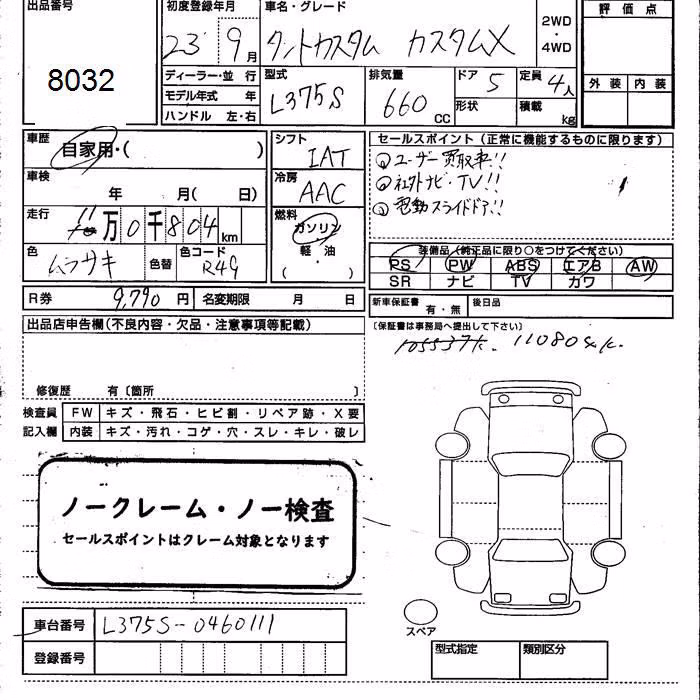 出品番号
8032
初度登録年月
23 9月
車名・グレード
タントカスタム カスタムX
2WD
・
4WD
評価点
外装 内装
ディーラー・並 行
モデル年式 年
ハンドル 左・右
型式
L375S
排気量
660 CC
ドア 5
形状
定員 4人
積載 kg
車歴
自家用・( )
車検
年 月( 日)
走行
11万0千804km
色
ムラサキ
色替
色コード
R49
シフト
IAT
冷房
AAC
燃料
ガソリン
軽・油
( )
セールスポイント(正常に機能するものに限ります)
①ユーザー買取車!!
②社外ナビ・TV!!
③電動スライドドア!!
装備品(純正品に限り○をつけてください)
PS PW ABS エアB AW
SR ナビ TV カワ
R券 9,790円 名変期限 月 日
新車保証書 有・無 後日品
(保証書は事務局へ提出して下さい)
105537k. 110804k.
出品店申告欄(不良内容・欠品・注意事項等記載)
修復歴 有〔箇所 〕
検査員 FW キズ・飛石・ヒビ割・リペア跡・X要
記入欄 内装 キズ・汚れ・コゲ・穴・スレ・キレ・破レ
ノークレーム・ノー検査
セールスポイントはクレーム対象となります
車台番号 L375S-0460111
登録番号
スペア
型式指定 類別区分